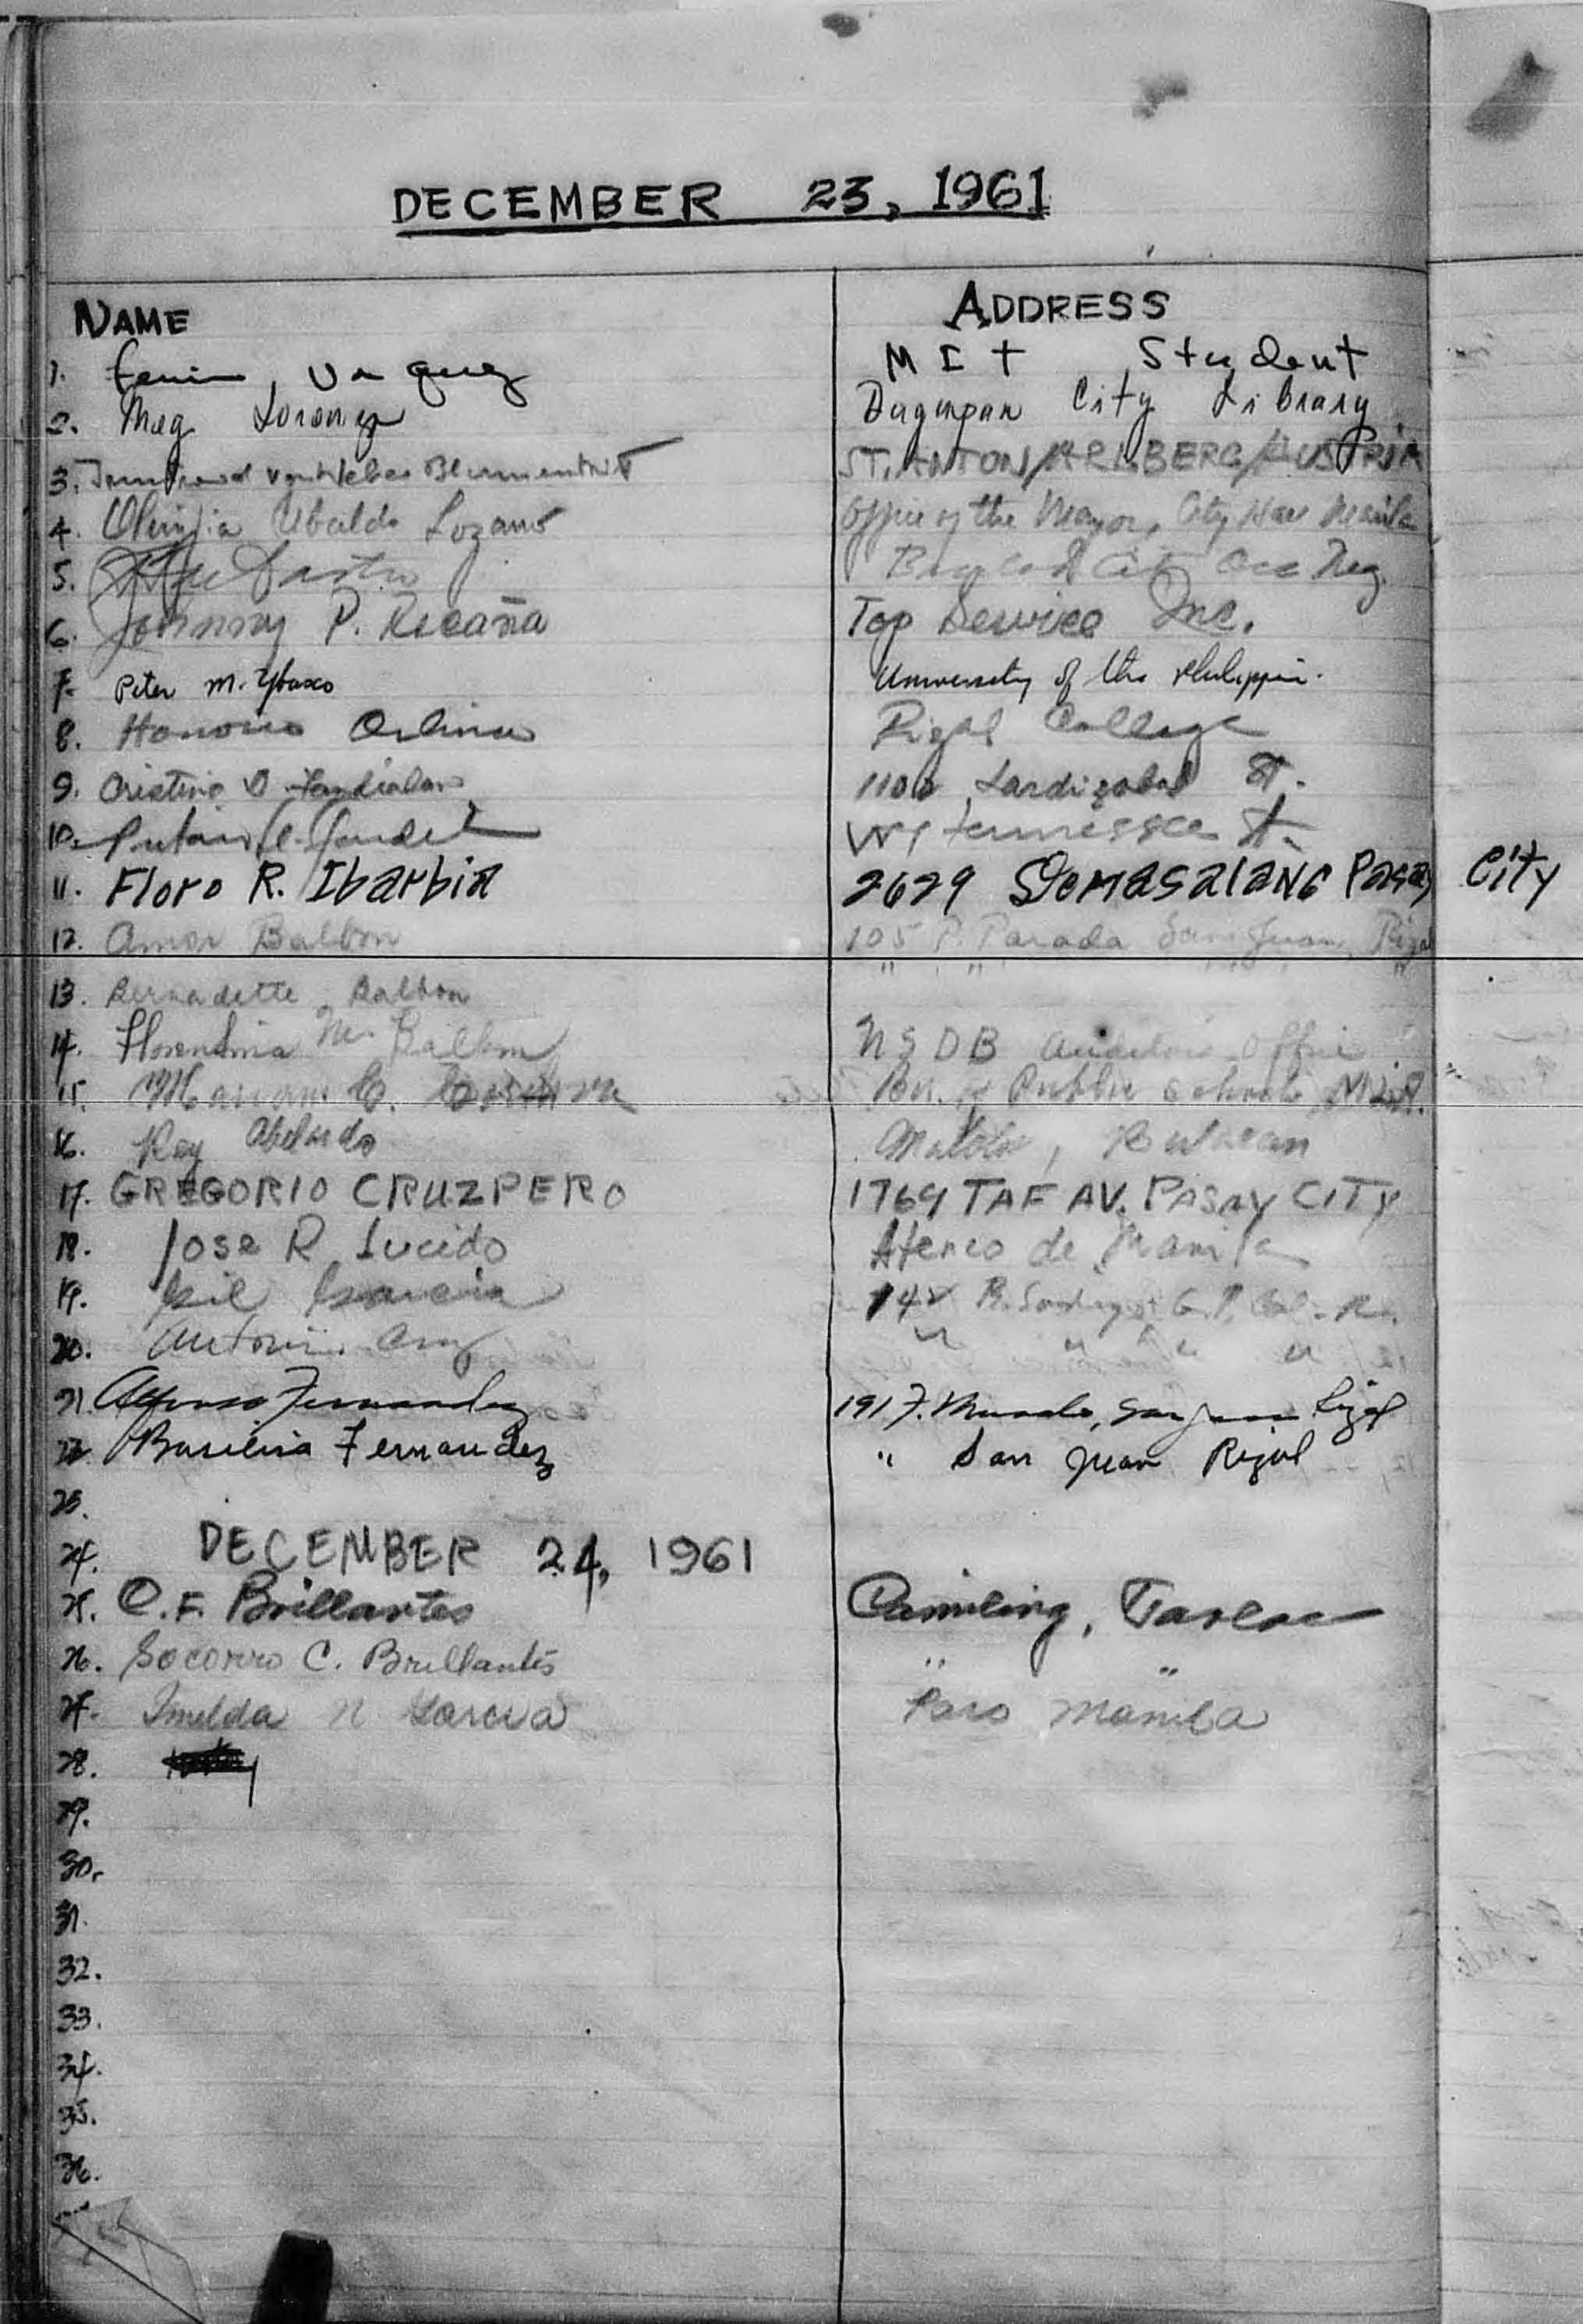 DECEMBER 23, 1961
NAME ADDRESS
1. MIT Student
2. Meg Dagupan City Library
3. Blumentritt ST. ANTON/ARLBERG/AUSTRIA
4. Olimpia Ubaldo Lozano Office of the Mayor, City Hall Manila
5. Castro Occ Neg.
6. Johnny P. Recaña Top Service Inc.
7. Peter M. Ybasco University of the Philippin.
8. Honorio Orlina Rizal College
9. Cristina D. 1100 Lardizabal St.
10. Tennessee St.
11. Floro R. Ibarbia 2629 Domasalang Pasay City
12. Amor Balbon 105 P. Parada San Juan, Rizal
13. Bernadette Balbon " " " "
14. Florentina M. Balbon NSDB Auditor's Office
15. C. Bu. of Public Schools, Mla.
16. Rey Abelardo Malolos, Bulacan
17. GREGORIO CRUZPERO 1764 TAF AV. PASAY CITY
18. Jose R. Lucido Ateneo de Manila
19. Gil Garcia 142
20. Antonio " " " "
21. Alfonso Fernandez 191 F. San Juan Rizal
22. Basilisa Fernandez " San Juan Rizal
23.
24. DECEMBER 24, 1961
25. C. F. Brillantes Camiling, Tarlac
26. Socorro C. Brillantes " "
27. Imelda N Garcia Paco Manila
28.
29.
30.
31.
32.
33.
34.
35.
36.